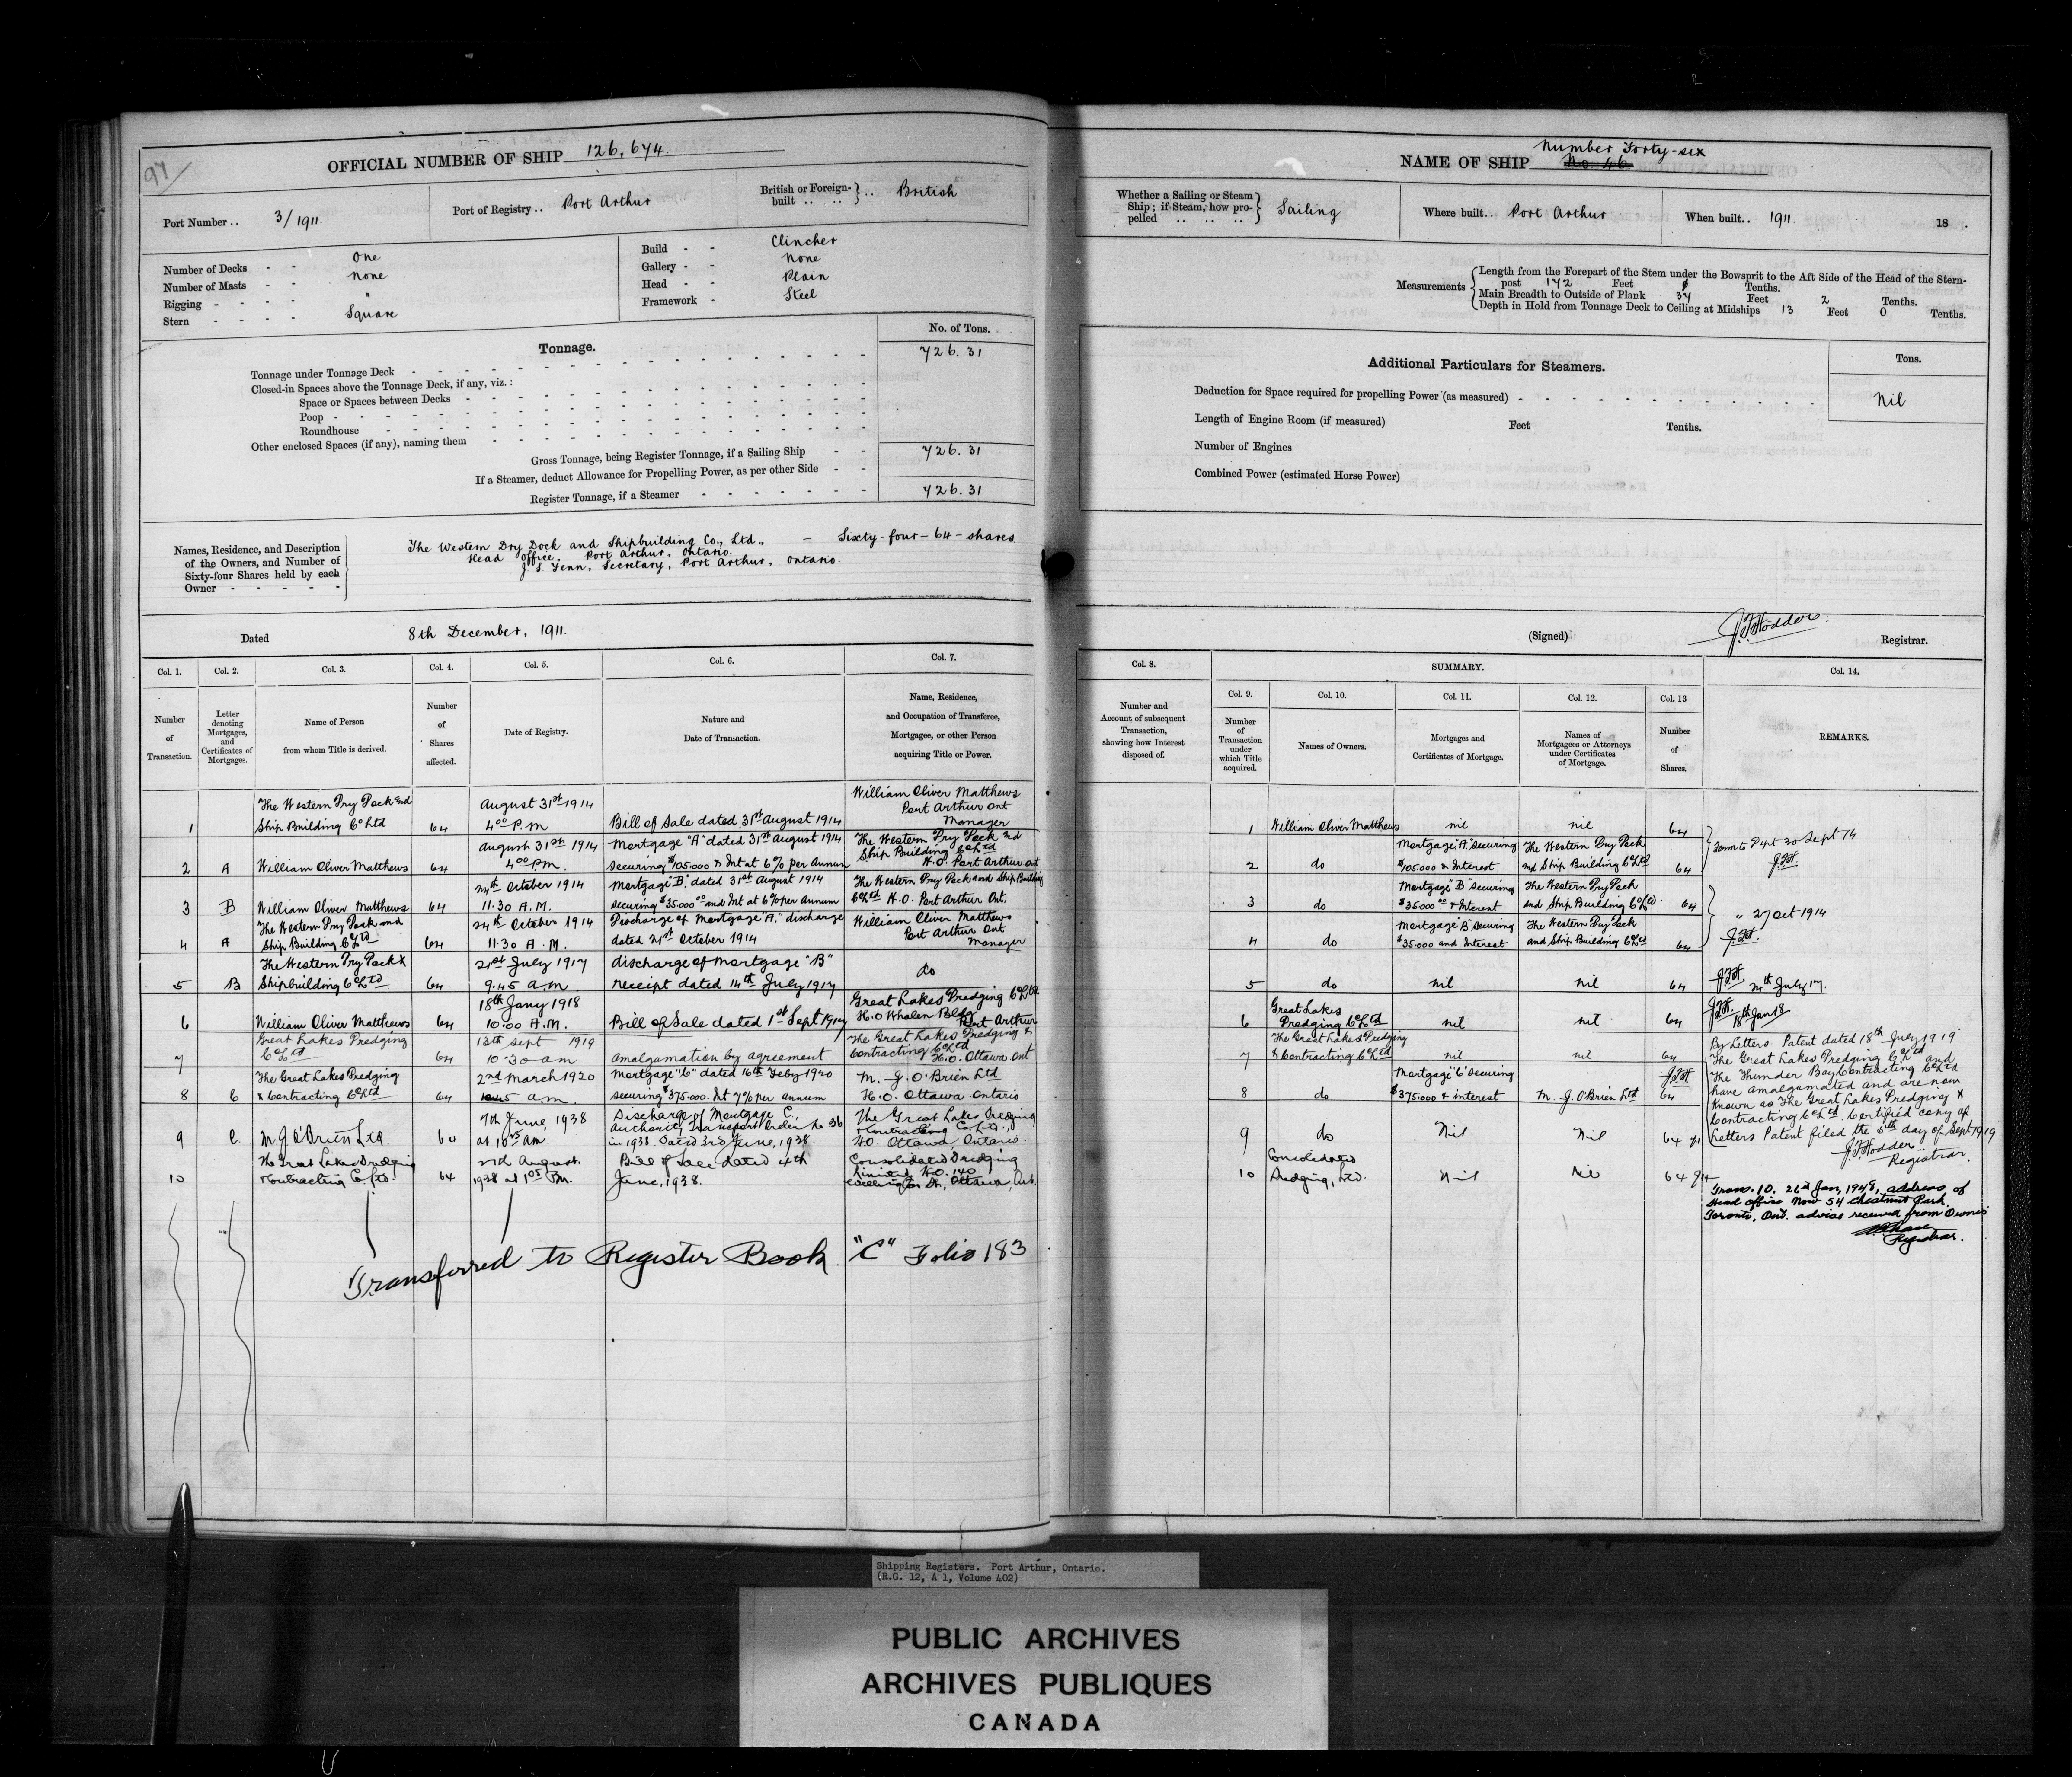 97
OFFICIAL NUMBER OF SHIP 126,674.
Port Number .. 3/1911.
Port of Registry .. Port Arthur
British or Foreign-built .. .. } .. British
Number of Decks - - One
Number of Masts - - None
Rigging - - - - "
Stern - - - - Square
Build - - Clincher
Gallery - - None
Head - - Plain
Framework - Steel
Tonnage.
No. of Tons.
Tonnage under Tonnage Deck 726.31
Closed-in Spaces above the Tonnage Deck, if any, viz.:
Space or Spaces between Decks
Poop
Roundhouse
Other enclosed Spaces (if any), naming them
Gross Tonnage, being Register Tonnage, if a Sailing Ship 726.31
If a Steamer, deduct Allowance for Propelling Power, as per other Side
Register Tonnage, if a Steamer 726.31
Names, Residence, and Description
of the Owners, and Number of
Sixty-four Shares held by each
Owner
The Western Dry Dock and Shipbuilding Co., Ltd., - Sixty-four-64-shares.
Head Office, Port Arthur, Ontario.
J. S. Fenn, Secretary, Port Arthur, Ontario.
Dated 8th December, 1911.
Col. 1. Col. 2. Col. 3. Col. 4. Col. 5. Col. 6. Col. 7.
Number of Transaction.
Letter denoting Mortgages, and Certificates of Mortgages.
Name of Person from whom Title is derived.
Number of Shares affected.
Date of Registry.
Nature and Date of Transaction.
Name, Residence, and Occupation of Transferee, Mortgagee, or other Person acquiring Title or Power.
1 The Western Dry Dock and Ship Building Co Ltd 64 August 31st 1914 4.00 P.M Bill of Sale dated 31st August 1914 William Oliver Matthews Port Arthur Ont Manager
2 A William Oliver Matthews 64 August 31st 1914 4.00 PM. Mortgage "A" dated 31st August 1914 securing $105.000 & Int at 6% per Annum The Western Dry Dock and Ship Building Co Ltd H.O. Port Arthur Ont
3 B William Oliver Matthews 64 24th October 1914 11.30 A.M. Mortgage "B" dated 31st August 1914 securing $35.000.00 and Int at 6% per Annum The Western Dry Dock and Ship Building Co Ltd H.O. Port Arthur Ont.
4 A The Western Dry Dock and Ship Building Co Ltd 64 24th October 1914 11.30 A.M. Discharge of Mortgage "A," discharge dated 21st October 1914 William Oliver Matthews Port Arthur Ont Manager
5 B The Western Dry Dock & Shipbuilding Co Ltd 64 21st July 1917 9.45 a.m. discharge of mortgage "B" receipt dated 14th July 1917 do
6 William Oliver Matthews 64 18th Jany 1918 10.00 A.M. Bill of Sale dated 1st Sept 1917 Great Lakes Dredging Co Ltd H.O Whalen Bldg Port Arthur
7 Great Lakes Dredging Co Ltd 64 13th Sept 1919 10.30 am amalgamation by agreement The Great Lakes Dredging & Contracting Co Ltd H.O. Ottawa Ont
8 C The Great Lakes Dredging & Contracting Co Ltd 64 2nd March 1920 10.45 a.m. Mortgage "C" dated 16th Feby 1920 securing $375.000. Int 7% per annum M. J. O'Brien Ltd H.O. Ottawa Ontario
9 C. M. J. O'Brien Ltd. 60 7th June, 1938 at 10 am. Discharge of Mortgage C., Authority Transport Order No 36 in 1938. Dated 3rd June, 1938. The Great Lakes Dredging & Contracting Co. Ltd., H.O. Ottawa, Ontario.
10 The Great Lakes Dredging & Contracting Co. Ltd. 64 27th August, 1938 at 1.05 P.M. Bill of Sale dated 4th June, 1938. Consolidated Dredging Limited, H.O. 140 Wellington St., Ottawa, Ont.
Transferred to Register Book "C" Folio 183
NAME OF SHIP No. 46 Number Forty-six
Whether a Sailing or Steam Ship; if Steam, how propelled } Sailing
Where built .. Port Arthur
When built .. 1911. 18 .
Measurements
Length from the Forepart of the Stem under the Bowsprit to the Aft Side of the Head of the Stern-
post 172 Feet 0 Tenths.
Main Breadth to Outside of Plank 34 Feet 2 Tenths.
Depth in Hold from Tonnage Deck to Ceiling at Midships 13 Feet 0 Tenths.
Additional Particulars for Steamers.
Tons.
Deduction for Space required for propelling Power (as measured) Nil
Length of Engine Room (if measured) Feet Tenths.
Number of Engines
Combined Power (estimated Horse Power)
(Signed) J. F. Hodder. Registrar.
Col. 8. SUMMARY. Col. 14.
Col. 9. Col. 10. Col. 11. Col. 12. Col. 13
Number and Account of subsequent Transaction, showing how Interest disposed of.
Number of Transaction under which Title acquired.
Names of Owners.
Mortgages and Certificates of Mortgage.
Names of Mortgagees or Attorneys under Certificates of Mortgage.
Number of Shares.
REMARKS.
1 William Oliver Matthews nil nil 64
2 do Mortgage "A" securing $105.000 & Interest The Western Dry Dock and Ship Building Co Ltd 64
3 do Mortgage "B" securing $35.000.00 & Interest The Western Dry Dock and Ship Building Co Ltd 64
4 do Mortgage "B" securing $35.000 and Interest The Western Dry Dock and Ship Building Co Ltd 64
5 do nil nil 64
6 Great Lakes Dredging Co Ltd nil nil 64
7 The Great Lakes Dredging & Contracting Co Ltd nil nil 64
8 do Mortgage "C" securing $375.000 & interest M. J. O'Brien Ltd 64
9 do Nil Nil 64
10 Consolidated Dredging, Ltd. Nil Nil 64
to Dept 30 Sept 14
J.F.H.
" 27 Oct 1914
J.F.H.
J.F.H. 24th July 17.
J.F.H. 18th Jan 18
By Letters Patent dated 18th July 1919
The Great Lakes Dredging Co Ltd and
The Thunder Bay Contracting Co Ltd
have amalgamated and are now
known as The Great Lakes Dredging &
Contracting Co Ltd. Certified copy of
Letters Patent filed the 5th day of Sept 1919
J. F. Hodder
Registrar.
J.F.H
Trans. 10. 26th Jan, 1948, address of
Head office Now 54 Chestnut Park,
Toronto, Ont. advice received from Owners
Registrar.
Shipping Registers. Port Arthur, Ontario.
(R.G. 12, A 1, Volume 402)
PUBLIC ARCHIVES
ARCHIVES PUBLIQUES
CANADA